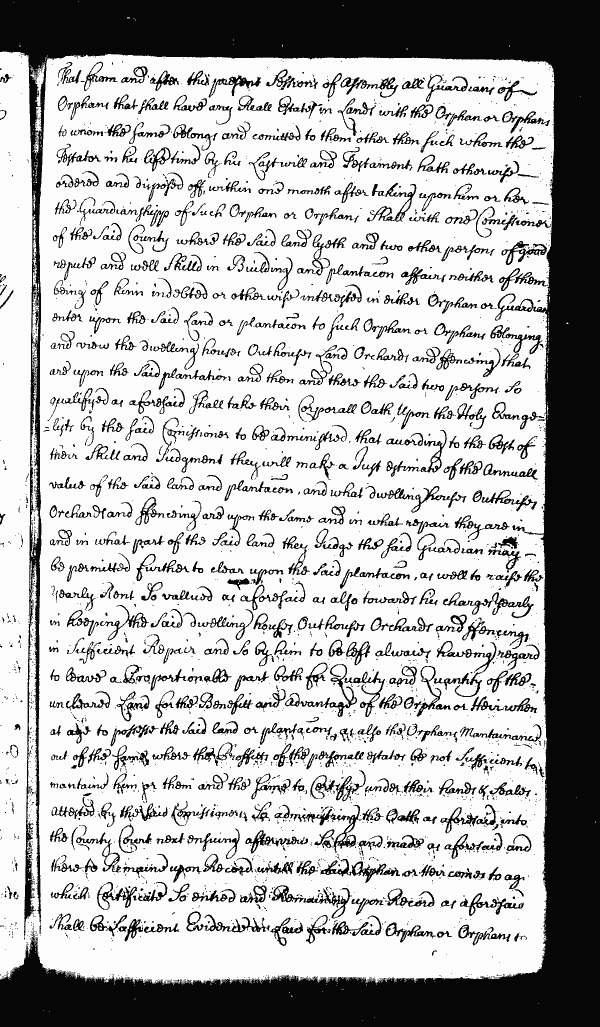 That from and after this present Sessions of Assembly all Guardians of
Orphans that shall have any Reall Estate in Lands with the Orphan or Orphans
to whom the same belongs and comitted to them other then such whom the
Testator in his life time by his Last will and Testament hath otherwise
ordered and disposed off, within one moneth after taking upon him or her
the Guardianshipp of such Orphan or Orphans Shall with one Comissioner
of the Said County where the Said land lyeth and two other persons of good
repute and well Skilld in Building and plantacon affairs neither of them
being of kinn indebted or otherwise interested in either Orphan or Guardian
enter upon the Said Land or plantacon to such Orphan or Orphans belonging
and view the dwelling houses Outhouses Land Orchards and ffenceing that
are upon the Said plantation and then and there the Said two persons So
qualifyed as aforesaid Shall take their Corporall Oath, Upon the Holy Evange=
=lists by the said Comissioner to be administred, that according to the best of
their Skill and Judgment they will make a Just estimate of the Annuall
value of the Said land and plantacon, and what dwelling houses Outhouses
Orchards and ffenceing are upon the Same and in what repair they are in
and in what part of the Said land they Judge the said Guardian may
be permitted further to clear upon the Said plantacon, as well to raise the
Yearly Rent So vallued as aforesaid as also towards his charge Yearly
in keeping the Said dwelling houses Outhouses Orchards and ffencings
in Sufficient Repair and So by him to be left alwaies haveing regard
to leave a Proportionable part both for Quality and Quantity of the
uncleared Land for the Benefitt and Advantage of the Orphan or Heir when
at age to possesse the Said land or plantacons, as also the Orphans Mantainance
out of the Same, where the Proffitts of the personall estates be not Sufficient to
mantaine him or them and the Same to Certifye under their hands & Seales
attested by the Said Comissioners So administring the Oath as aforesaid, into
the County Court next ensuing after view So had and made as aforesaid and
there to Remaine upon Record untill the Said Orphan or Heir comes to age
which Certificate So entred and Remaining upon Record as aforesaid
Shall be Sufficient Evidence in Law for the Said Orphan or Orphans to